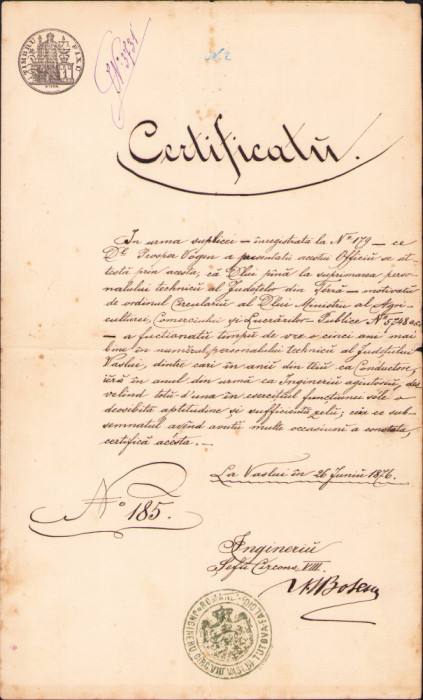 TIMBRU FIX
No 3731
No 2
Certificatŭ.
In urma suplicei — înregistrată la No 179 — ce
Dl Prospa Vögen a presentatŭ acestui Officiŭ a at-
testă prin acesta, că Dlui pînă la suprimarea perso-
nalului technicŭ al Judeţelor din Ţéră — motivată
de ordinul Circularŭ al Dlui Ministru al Agri-
culturei, Comerciului şi Lucrărilor Publice No 5748 a.c.
— a functionatŭ timpŭ de vre o cinci ani mai
bine în numĕrul personalului technicŭ al Judeţului
Vaslui, dintre cari în aniĭ din tĭiŭ ca Conductore,
iéră în anul din urmă ca Ingineriŭ ajutorŭ, des-
velind totŭ d'una în exerciţiul funcţiunei séle o
deosibită aptitudine şi sufficientŭ zelŭ; ceia ce sub-
semnatul avînd avutŭ multe occasiuni a constata,
certifică acésta. —
La Vaslui în 26 Juniŭ 1876.
No 185.
Ingineriŭ
Şefŭ Circons. VIII.
ROMANIA
INGINERU CIRC. VIII VASLUI TUTOVA FALCIU